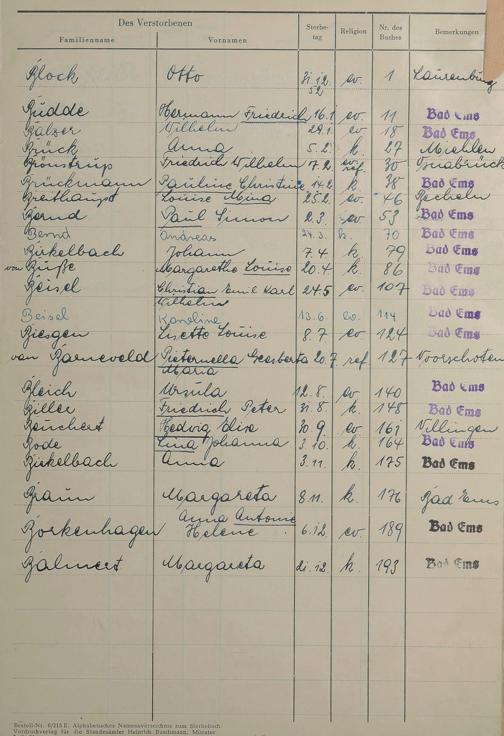 Des Verstorbenen
Familienname Vornamen Sterbetag Religion Nr. des Buches Bemerkungen
Block Otto 31.12. 52 ev. 1 Laurenburg
Budde Hermann Friedrich 16.1 ev. 11 Bad Ems
Balzer Wilhelm 29.1. ev 18 Bad Ems
Brück Anna 5.2. k 27 Miehlen
Brönstrup Friedrich Wilhelm 7.2. ev. ref. 30 Osnabrück
Brückmann Pauline Christine 14.2. k 38 Bad Ems
Breithaupt Louise Mina 25.2. ev 46 Becheln
Bernd Paul Simon 2.3. ev 53 Bad Ems
Bernd Andreas 24.3. k. 70 Bad Ems
Birkelbach Johann 7.4. k 79 Bad Ems
von Buße Margarethe Louise 20.4 k. 86 Bad Ems
Beisel Christian Emil Karl 24.5 ev 107 Bad Ems
Wilhelm
Beisel Karoline 13.6. ev. 114 Bad Ems
Biesgen Lisette Louise 8.7 ev 124 Bad Ems
van Barneveld Pieternella Geesberta 20.7. ref. 127 Voorschoten
Maria
Bleich Ursula 12.8. ev 140 Bad Ems
Biller Friedrich Peter 31.8 k. 148 Bad Ems
Beuchert Hedwig Elise 30.9 ev 161 Villingen
Bode Lina Johanna 3.10. k 164 Bad Ems
Birkelbach Anna 3.11. k 175 Bad Ems
Braun Margareta 8.11. k. 176 Bad Ems
Anna Antonie
Borkenhagen Helene 6.12 ev. 189 Bad Ems
Balmert Margareta 21.12 k. 193 Bad Ems
Bestell-Nr. 6/215 E. Alphabetisches Namensverzeichnis zum Sterbebuch.
Vordruckverlag für die Standesämter Heinrich Buschmann, Münster